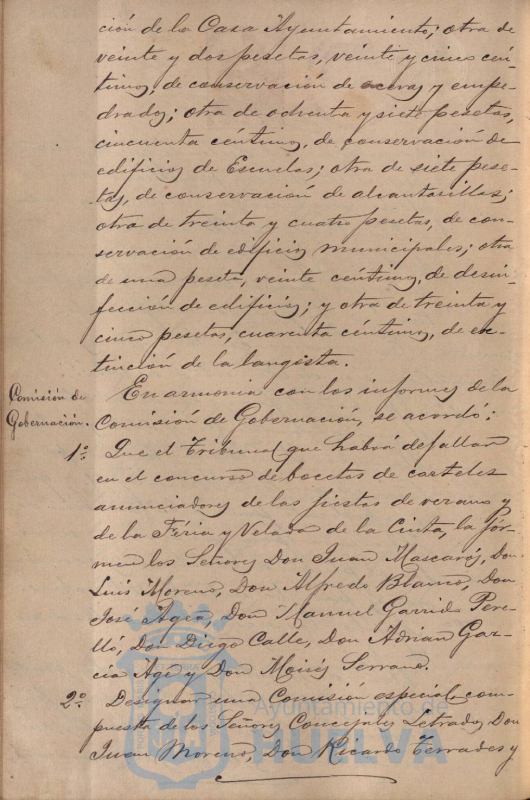 ción de la Casa Ayuntamiento; otra de
veinte y dos pesetas, veinte y cinco cén-
timos, de conservación de aceras y empe-
drados; otra de ochenta y siete pesetas,
cincuenta céntimos, de conservación de
edificios de Escuelas; otra de siete pese-
tas, de conservación de alcantarillas;
otra de treinta y cuatro pesetas, de con-
servación de edificios municipales; otra
de una peseta, veinte céntimos, de desin-
fección de edificios; y otra de treinta y
cinco pesetas, cuarenta céntimos, de ex-
tinción de la langosta.
Comisión de
Gobernación.
En armonia con los informes de la
Comisión de Gobernación, se acordó:
1º Que el Tribunal que habrá de fallar
en el concurso de bocetos de carteles
anunciadores de las fiestas de verano y
de la Féria y Velada de la Cinta, la fór-
men los Señores Don Juan Mascarós, Don
Luis Moreno, Don Alfredo Blanco, Don
José Agea, Don Manuel Garrido Pere-
lló, Don Diego Calle, Don Adrian Gar-
cía Age y Don Moisés Serrano.
2º Designar una Comisión especial com-
puesta de los Señores Concejales Letrados, Don
Juan Moreno, Don Ricardo Terrades y
Ayuntamiento de
HUELVA